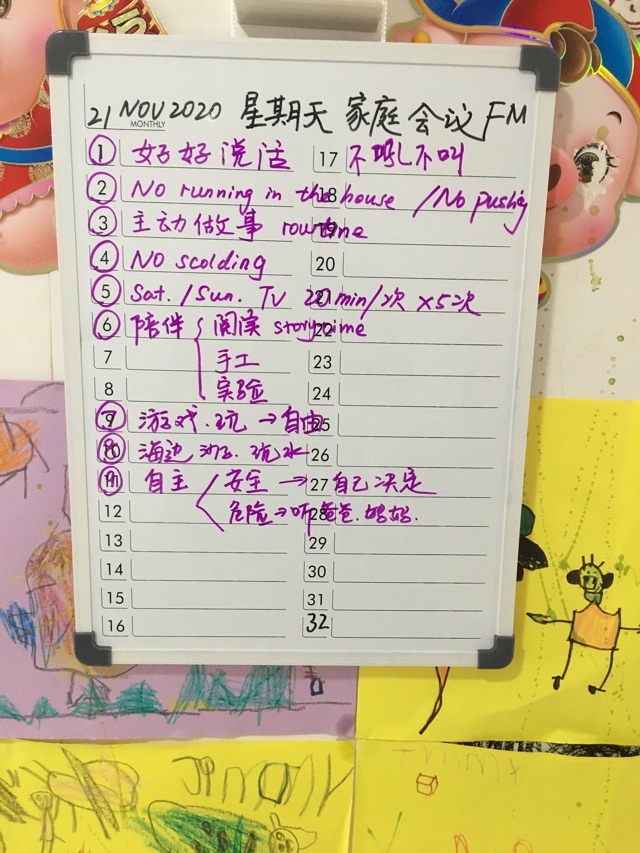 21 NOV 2020 星期天 家庭会议 FM
MONTHLY
① 好好说话 17 不吼不叫
② No running in the house / No pushing 18
③ 主动做事 routine 19
④ No scolding 20
⑤ Sat. / Sun. TV 20 min/次 ×5次 21
⑥ 陪伴 阅读 storytime 22
7 手工 23
8 实验 24
⑦ 游戏.玩 → 自由 25
⑧ 海边 玩水 26
⑨ 自主 安全 → 自己决定 27
12 危险 → 听爸爸.妈妈. 28
13 29
14 30
15 31
16 32
JIMMY